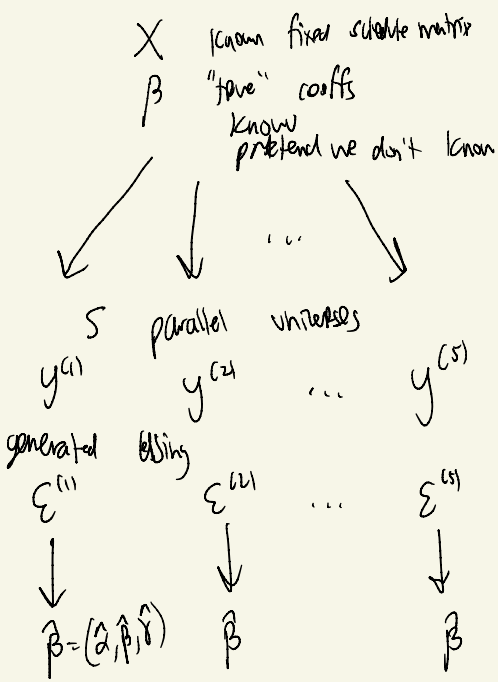 X known fixed schedule matrix
β "true" coeffs
know
pretend we don't know
...
S parallel universes
y⁽¹⁾ y⁽²⁾ ... y⁽ˢ⁾
generated using
ε⁽¹⁾ ε⁽²⁾ ... ε⁽ˢ⁾
β̂=(α̂,β̂,γ̂) β̂ β̂